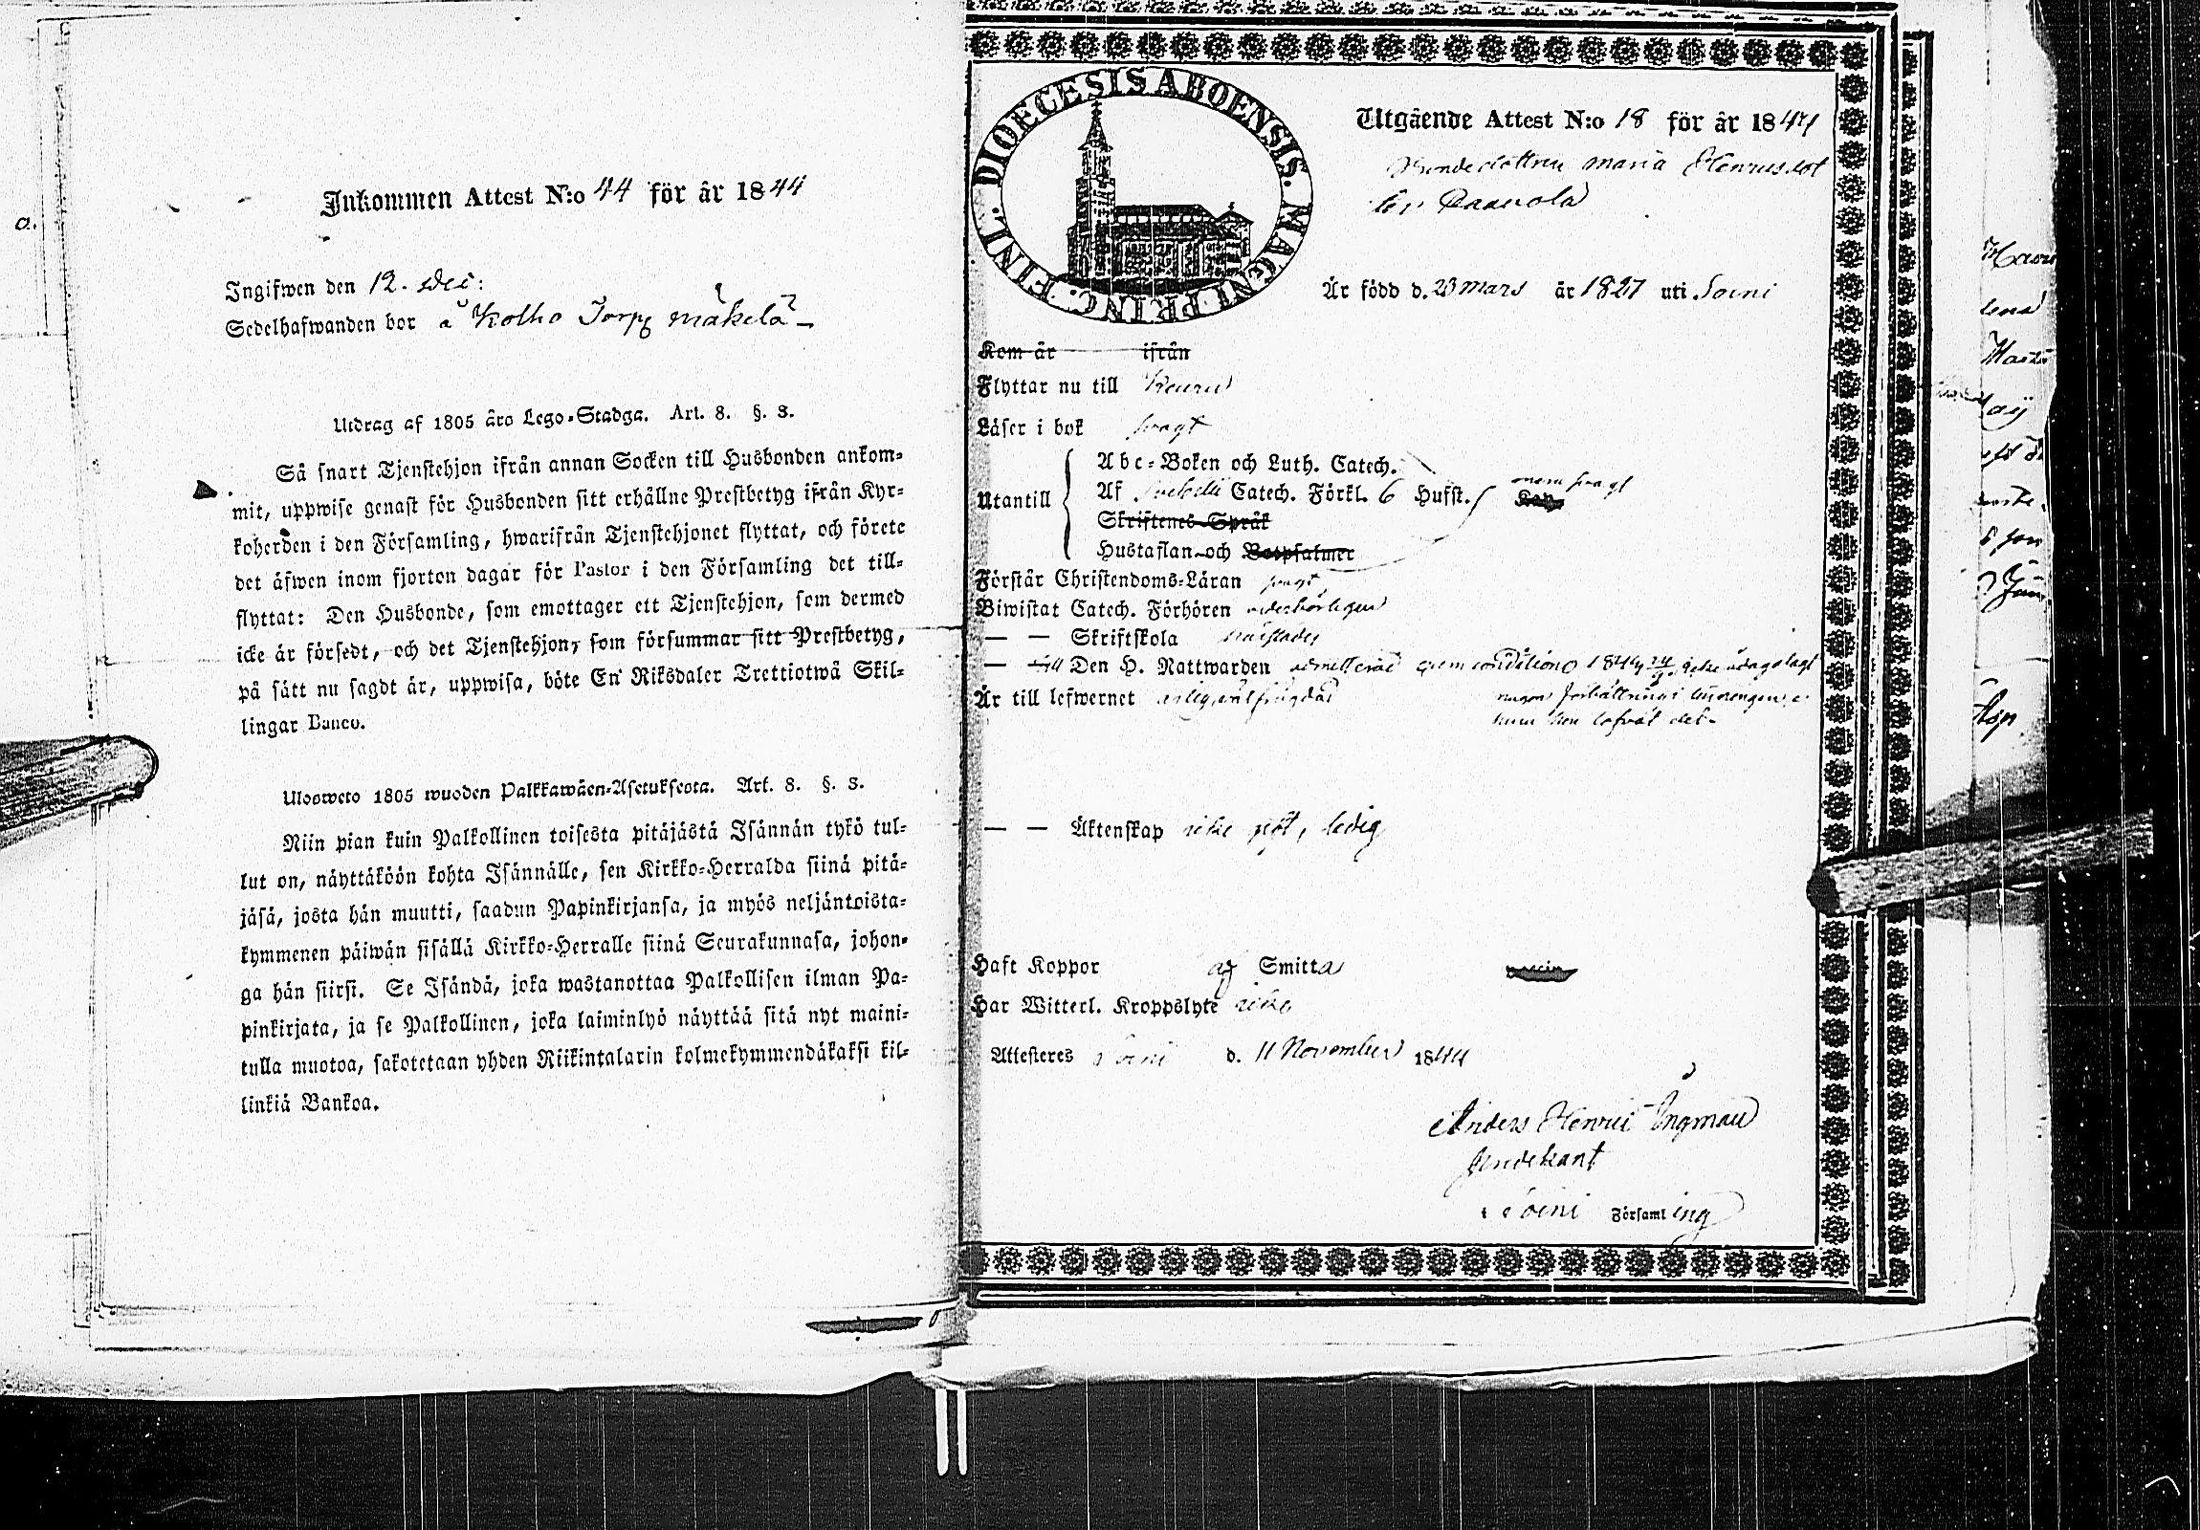 Inkommen Attest N:o 44 för år 1844
Ingifwen den 12. Dec:
Sedelhafwanden bor å Kolho Torp Mäkelä
Utdrag af 1805 års Lego-Stadga. Art. 8. §. 3.
Så snart Tjenstehjon ifrån annan Socken till Husbonden ankom-
mit, uppwise genast för Husbonden sitt erhållne Prestbetyg ifrån Kyr-
koherden i den Församling, hwarifrån Tjenstehjonet flyttat, och förete
det äfwen inom fjorton dagar för Pastor i den Församling det till-
flyttat: Den Husbonde, som emottager ett Tjenstehjon, som dermed
icke är försedt, och det Tjenstehjon, som försummar sitt Prestbetyg,
på sätt nu sagdt är, uppwisa, böte En Riksdaler Trettiotwå Skil-
lingar Banco.
Ulosweto 1805 wuoden Palkkawäen-Asetuksesta. Art. 8. §. 3.
Niin pian kuin Palkollinen toisesta pitäjästä Isännän tykö tul-
lut on, näyttäköön kohta Isännälle, sen Kirkko-Herralda siinä pitä-
jäsä, josta hän muutti, saadun Papinkirjansa, ja myös neljäntoista-
kymmenen päiwän sisällä Kirkko-Herralle siinä Seurakunnasa, johon-
ga hän siirsi. Se Isändä, joka wastanottaa Palkollisen ilman Pa-
pinkirjata, ja se Palkollinen, joka laiminlyö näyttää sitä nyt maini-
tulla muotoa, sakotetaan yhden Riikintalarin kolmekymmendäkaksi kil-
linkiä Bankoa.
DIOECESIS ABOENSIS. MAGNI PRINC. FINL.
Utgående Attest N:o 18 för år 1844
Bondedottren Maria Henriksdot
ter
Är född d. 23 Mars år 1827 uti Soini
Kom år ifrån
Flyttar nu till Keuru
Läser i bok swagt
Utantill
Abc-Boken och Luth. Catech.
Af Swebelii Catech. Förkl. 6 Hufst.
Skriftenes Språk
Hustaflan och Botpsalmer
Förstår Christendoms-Läran swagt
Biwistat Catech. Förhören
— — Skriftskola
— till Den H. Nattwarden admitterad
Är till lefwernet
— — Äktenskap icke gift, ledig
Haft Koppor af Smitta
Har Witterl. Kroppslyte icke
Attesteres Soini d. 11 November 1844
Anders Henric Ingman
Predikant
i Soini Församling